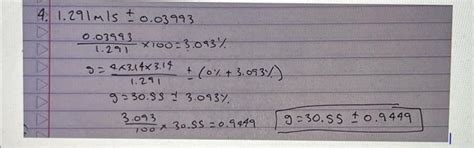 4. 1.291m/s ± 0.03993
0.03993/1.291 × 100 = 3.093%
g = 4×3.14×3.14/1.291 ± (0% + 3.093%)
g = 30.55 ± 3.093%
3.093/100 × 30.55 = 0.9449
g = 30.55 ± 0.9449